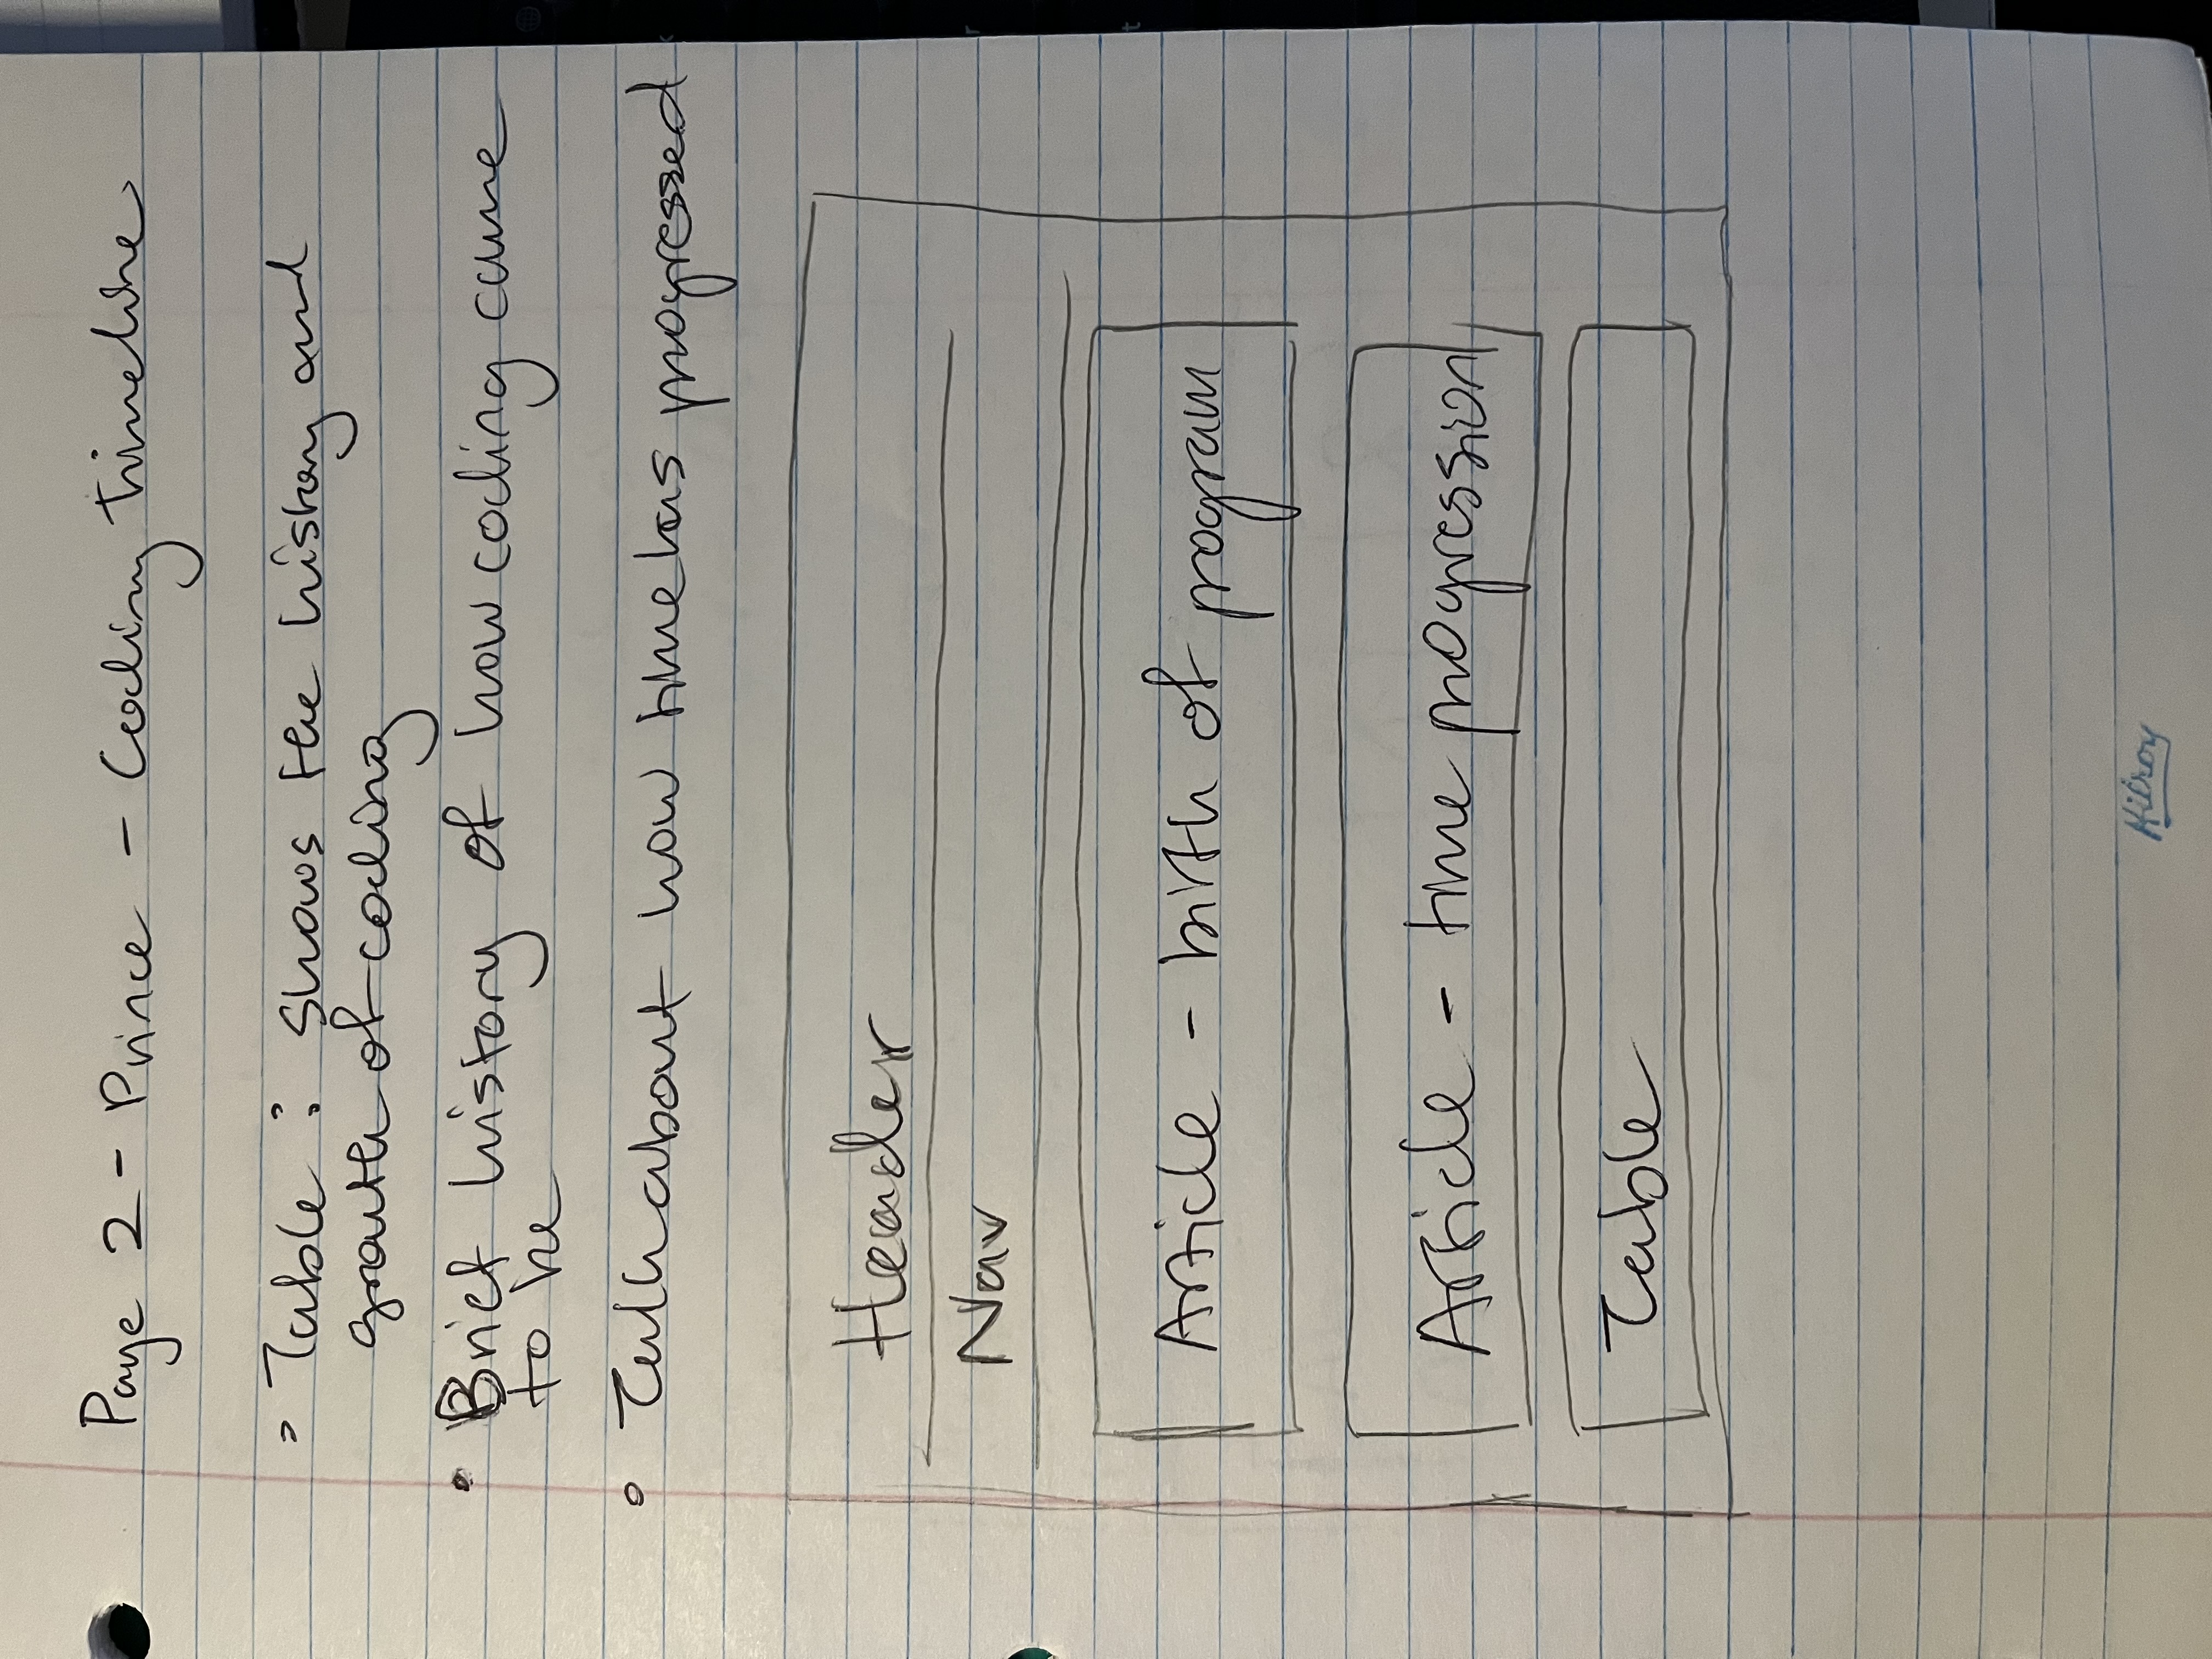 Page 2 - Prince - Coding timeline
Table : shows the history and
growth of coding
Brief history of how coding came
to be
Talk about how time has progressed
Header
Nav
Article - birth of program
Article - time progression
Table
Hilroy